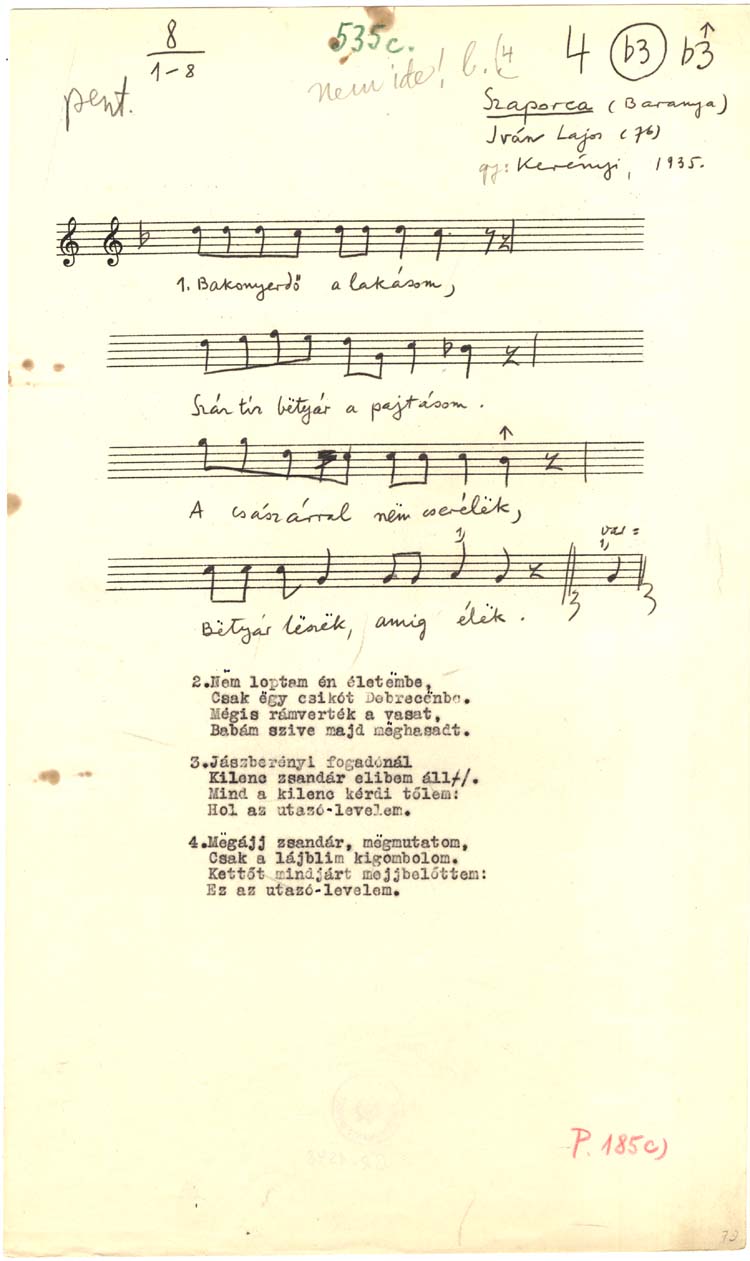 8
1-8
535c.
nem ide!
4 b3 b3↑
pent.
Szaporca (Baranya)
Iván Lajos (76)
gy: Kerényi, 1935.
1. Bakonyerdő a lakásom,
Száz tíz bëtyár a pajtásom.
A császárral nëm cserélëk,
1,
var =
1,
Bëtyár lëszëk, amig élëk.
2.Nëm loptam én életëmbe,
Csak ëgy csikót Debrecënbe.
Mégis rámverték a vasat,
Babám szive majd mëghasadt.
3.Jászberényi fogadónál
Kilenc zsandár elibem áll.
Mind a kilenc kérdi tőlem:
Hol az utazó-levelem.
4.Mëgájj zsandár, mëgmutatom,
Csak a lájblim kigombolom.
Kettőt mindjárt mejjbelőttem:
Ez az utazó-levelem.
P. 185c)